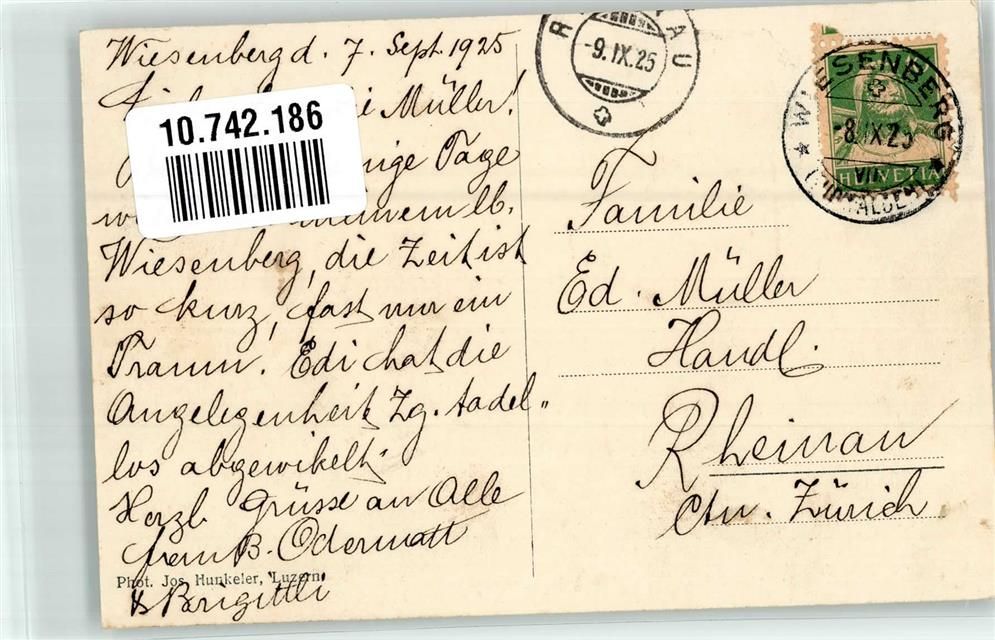 Wiesenberg d. 7. Sept. 1925
Müller!
10.742.186
einige Tage
meinem lb.
Wiesenberg, die Zeit ist
so kurz, fast nur ein
Traum. Edi hat die
Angelegenheit Zg. tadel„
los abgewikelt.
Herzl. Grüsse an Alle
B. Odermatt
Phot. Jos. Hunkeler, Luzern
& Brigittli
R AU
-9.IX.25
WIESENBERG
-8.IX.25
VII
(NIDWALDEN)
HELVETIA
Familie
Ed. Müller
Handl.
Rheinau
Ctn. Zürich